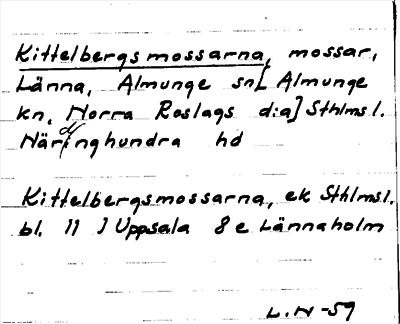 Kittelbergsmossarna, mossar,
Länna, Almunge sn[ Almunge
kn, Norra Roslags d:a] Sthlms l.
Närdinghundra hd
Kittelbergsmossarna, ek Sthlms l.
bl. 11 } Uppsala 8 e Lännaholm
L.N-59